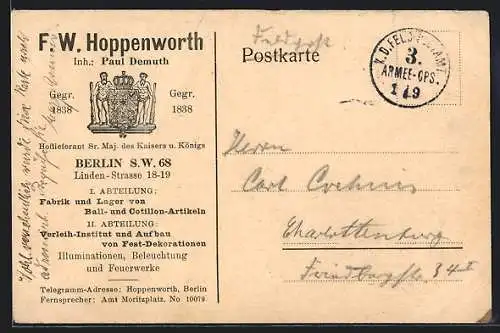 F. W. Hoppenworth
Inh.: Paul Demuth
Gegr. 1838
Gegr. 1838
Hoflieferant Sr. Maj. des Kaisers u. Königs
BERLIN S.W. 68
Linden-Strasse 18-19
I. ABTEILUNG:
Fabrik und Lager von
Ball- und Cotillon-Artikeln
II. ABTEILUNG:
Verleih-Institut und Aufbau
von Fest-Dekorationen
Illuminationen, Beleuchtung
und Feuerwerke
Telegramm-Adresse: Hoppenworth, Berlin
Fernsprecher: Amt Moritzplatz. No 10079
Feldpost
Postkarte
K.D. FELD-POSTAMT
3.
ARMEE-CPS.
1 9
Herrn
Carl
Charlottenburg
34 II